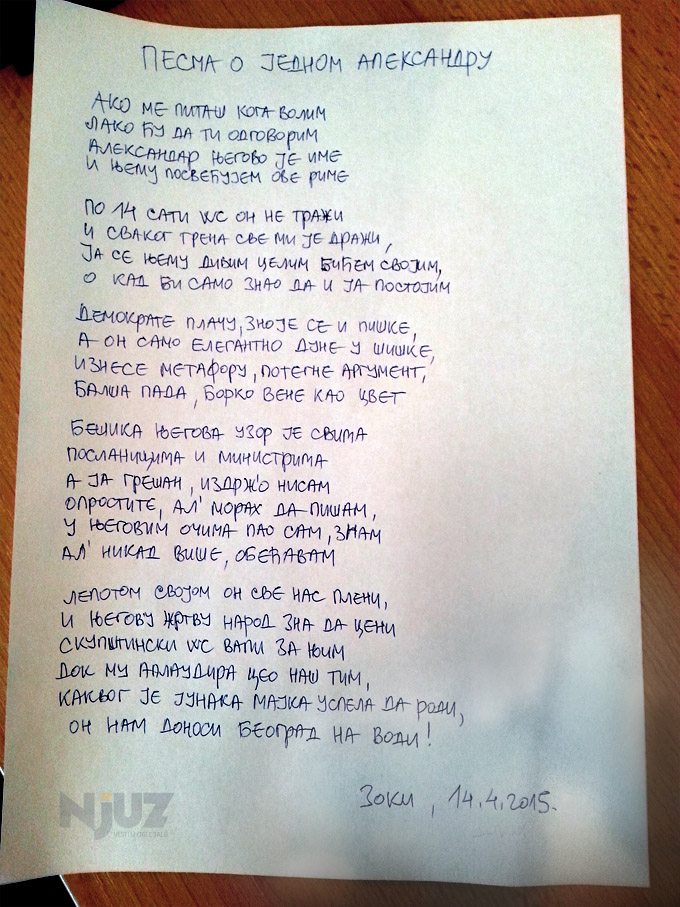 ПЕСМА О ЈЕДНОМ АЛЕКСАНДРУ
АКО МЕ ПИТАШ КОГА ВОЛИМ
ЛАКО ЋУ ДА ТИ ОДГОВОРИМ
АЛЕКСАНДАР ЊЕГОВО ЈЕ ИМЕ
И ЊЕМУ ПОСВЕЋУЈЕМ ОВЕ РИМЕ
ПО 14 САТИ WC ОН НЕ ТРАЖИ
И СВАКОГ ТРЕНА СВЕ МИ ЈЕ ДРАЖИ,
ЈА СЕ ЊЕМУ ДИВИМ ЦЕЛИМ БИЋЕМ СВОЈИМ,
О КАД БИ САМО ЗНАО ДА И ЈА ПОСТОЈИМ
ДЕМОКРАТЕ ПЛАЧУ, ЗНОЈЕ СЕ И ПИШКЕ,
А ОН САМО ЕЛЕГАНТНО ДУНЕ У ШИШКЕ,
ИЗНЕСЕ МЕТАФОРУ, ПОТЕГНЕ АРГУМЕНТ,
БАЛША ПАДА, БОРКО ВЕНЕ КАО ЦВЕТ
БЕШИКА ЊЕГОВА УЗОР ЈЕ СВИМА
ПОСЛАНИЦИМА И МИНИСТРИМА
А ЈА ГРЕШАН, ИЗДРЖ'О НИСАМ
ОПРОСТИТЕ, АЛ' МОРАХ ДА ПИШАМ,
У ЊЕГОВИМ ОЧИМА ПАО САМ, ЗНАМ
АЛ' НИКАД ВИШЕ, ОБЕЋАВАМ
ЛЕПОТОМ СВОЈОМ ОН СВЕ НАС ПЛЕНИ,
И ЊЕГОВУ ЖРТВУ НАРОД ЗНА ДА ЦЕНИ
СКУПШТИНСКИ WC ВАПИ ЗА ЊИМ
ДОК МУ ААЛАУДИРА ЦЕО НАШ ТИМ,
КАКВОГ ЈЕ ЈУНАКА МАЈКА УСПЕЛА ДА РОДИ,
ОН НАМ ДОНОСИ БЕОГРАД НА ВОДИ!
ЗОКИ, 14.4.2015.
NJUZ